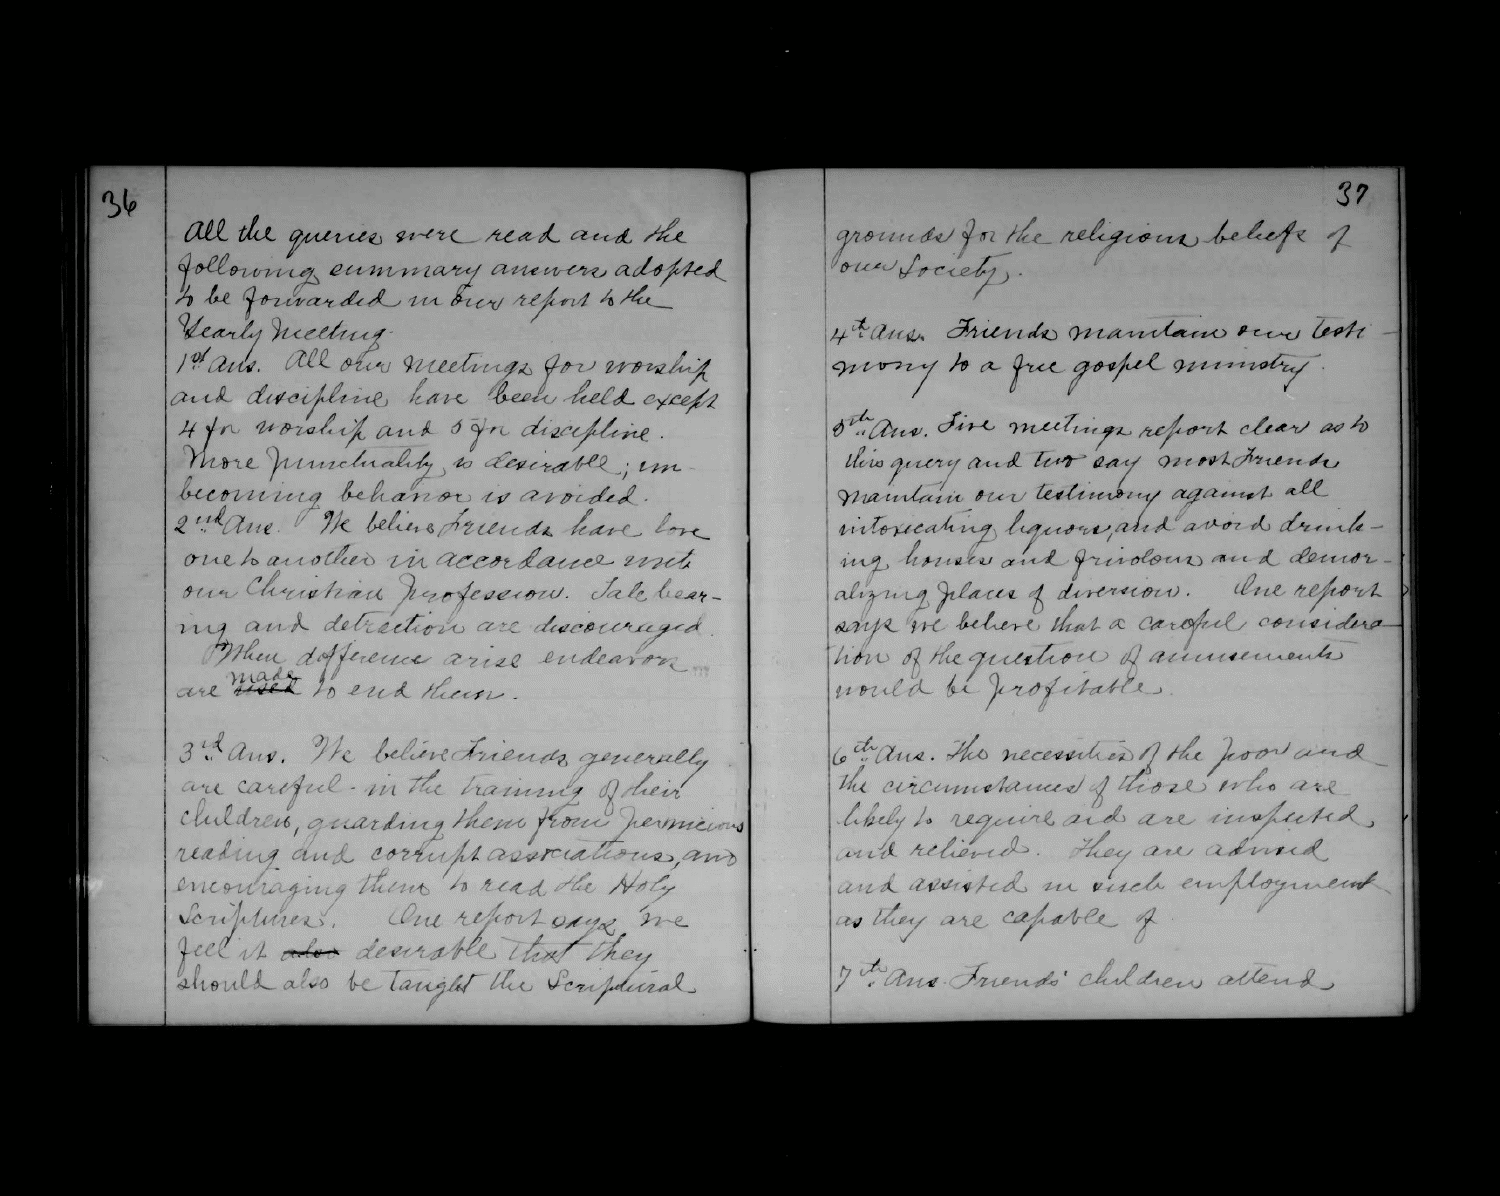 36
All the queries were read and the
following summary answers adopted
to be forwarded in our report to the
Yearly Meeting.
1st Ans. All our meetings for worship
and discipline have been held except
4 for worship and 5 for discipline.
More punctuality is desirable; un-
becoming behavior is avoided.
2nd Ans. We believe Friends have love
one to another in accordance with
our Christian Profession. Tale bear-
ing and detraction are discouraged.
When difference arise endeavors
made
are used to end them.
3rd Ans. We believe Friends generally
are careful in the training of their
children, guarding them from pernicious
reading and corrupt associations, and
encouraging them to read the Holy
Scriptures. One report says We
feel it also desirable that they
should also be taught the Scriptural
37
grounds for the religious beliefs of
our Society.
4th Ans. Friends maintain our testi-
mony to a free gospel ministry.
5th Ans. Five meetings report clear as to
this query and two say most Friends
maintain our testimony against all
intoxicating liquors, and avoid drink-
ing houses and frivolous and demor-
alizing places of diversion. One report
says we believe that a careful considera-
tion of the question of amusements
would be profitable.
6th Ans. The necessities of the poor and
the circumstances of those who are
likely to require aid are inspected
and relieved. They are advised
and assisted in such employment
as they are capable of
7th Ans. Friends' children attend